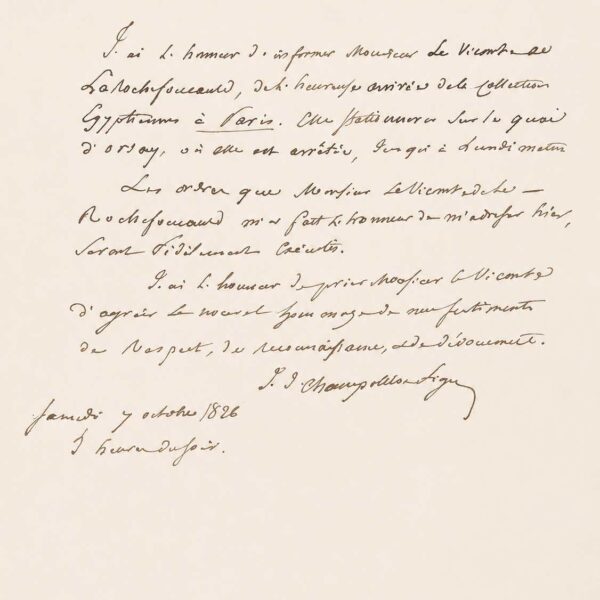 J'ai l'honneur d'informer Monsieur Le Vicomte de
LaRochefoucauld, de l'heureuse arrivée de la Collection
Egyptienne à Paris. Elle stationnera sur le quai
d'orsay, où elle est arrêtée, jusqu'à Lundi matin
Les ordres que Monsieur Le Vicomte de la —
Rochefoucauld m'a fait l'honneur de m'adresser hier,
seront fidèlement exécutés.
J'ai l'honneur de prier Monsieur le Vicomte
d'agréer le nouvel hommage de mes sentiments
de Respect, de reconnaissance, et de dévouement.
J. J. Champollion figeac
Samedi 7 octobre 1826
heures du soir.